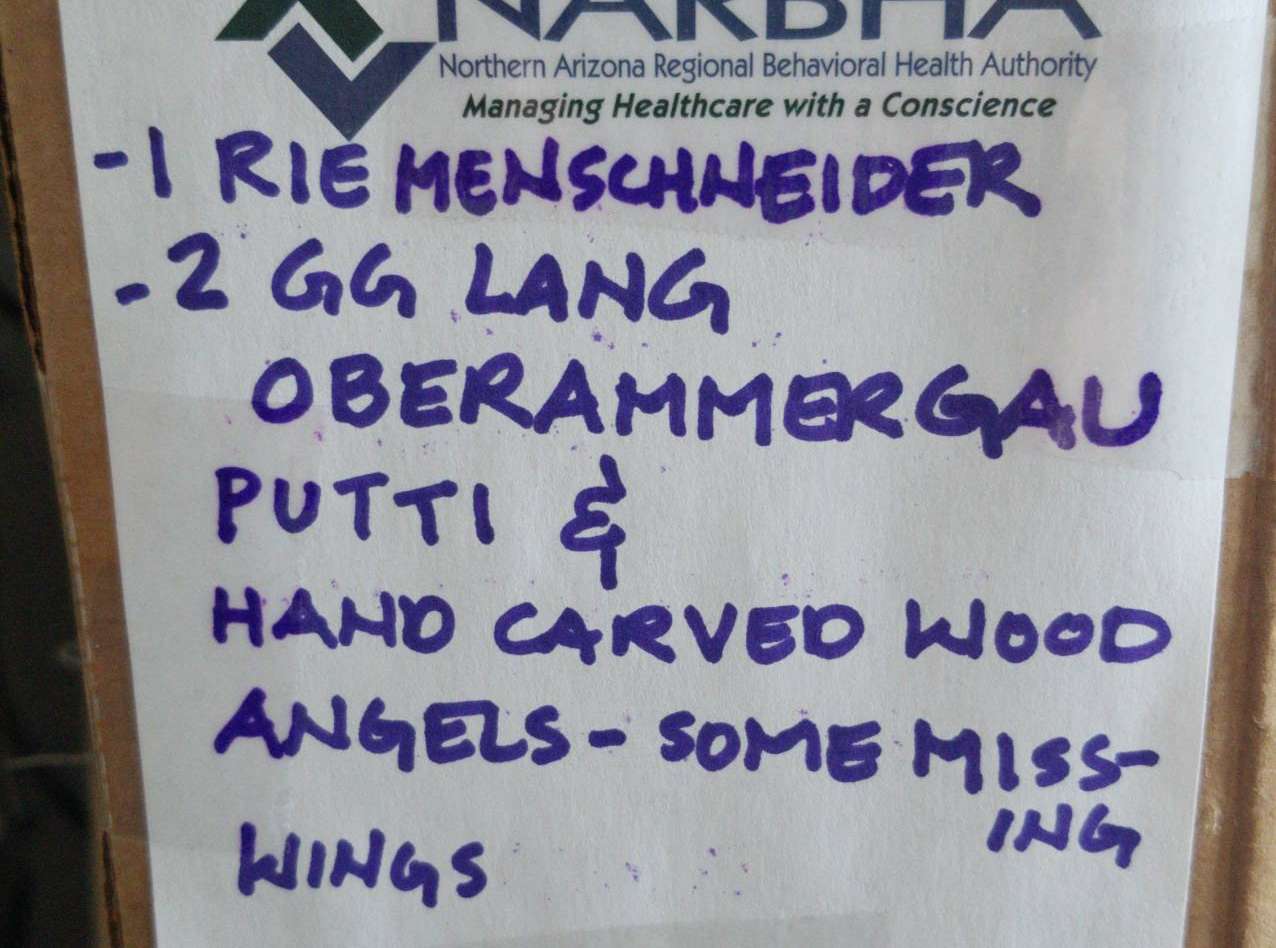 NARBHA
Northern Arizona Regional Behavioral Health Authority
Managing Healthcare with a Conscience
-1 RIEMENSCHNEIDER
-2 GG LANG
OBERAMMERGAU
PUTTI &
HAND CARVED WOOD
ANGELS - SOME MISS-
ING
WINGS